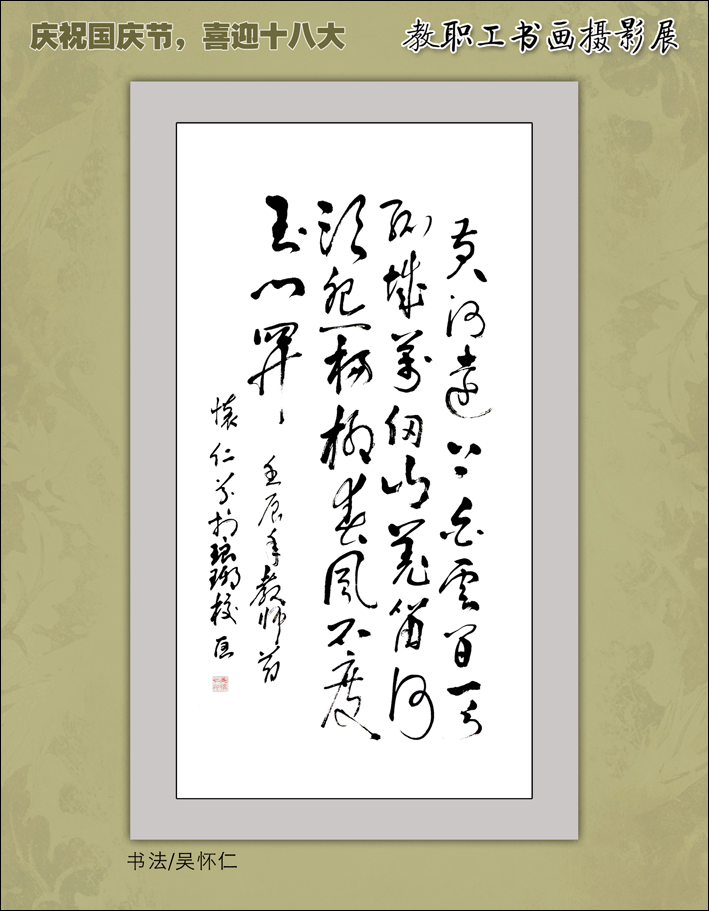 庆祝国庆节，喜迎十八大
教职工书画摄影展
黄河遠上白雲間一片
孤城萬仞山羌笛何
須怨楊柳春風不度
玉門關
壬辰年教师节
懷仁書於琅琊校区
书法/吴怀仁